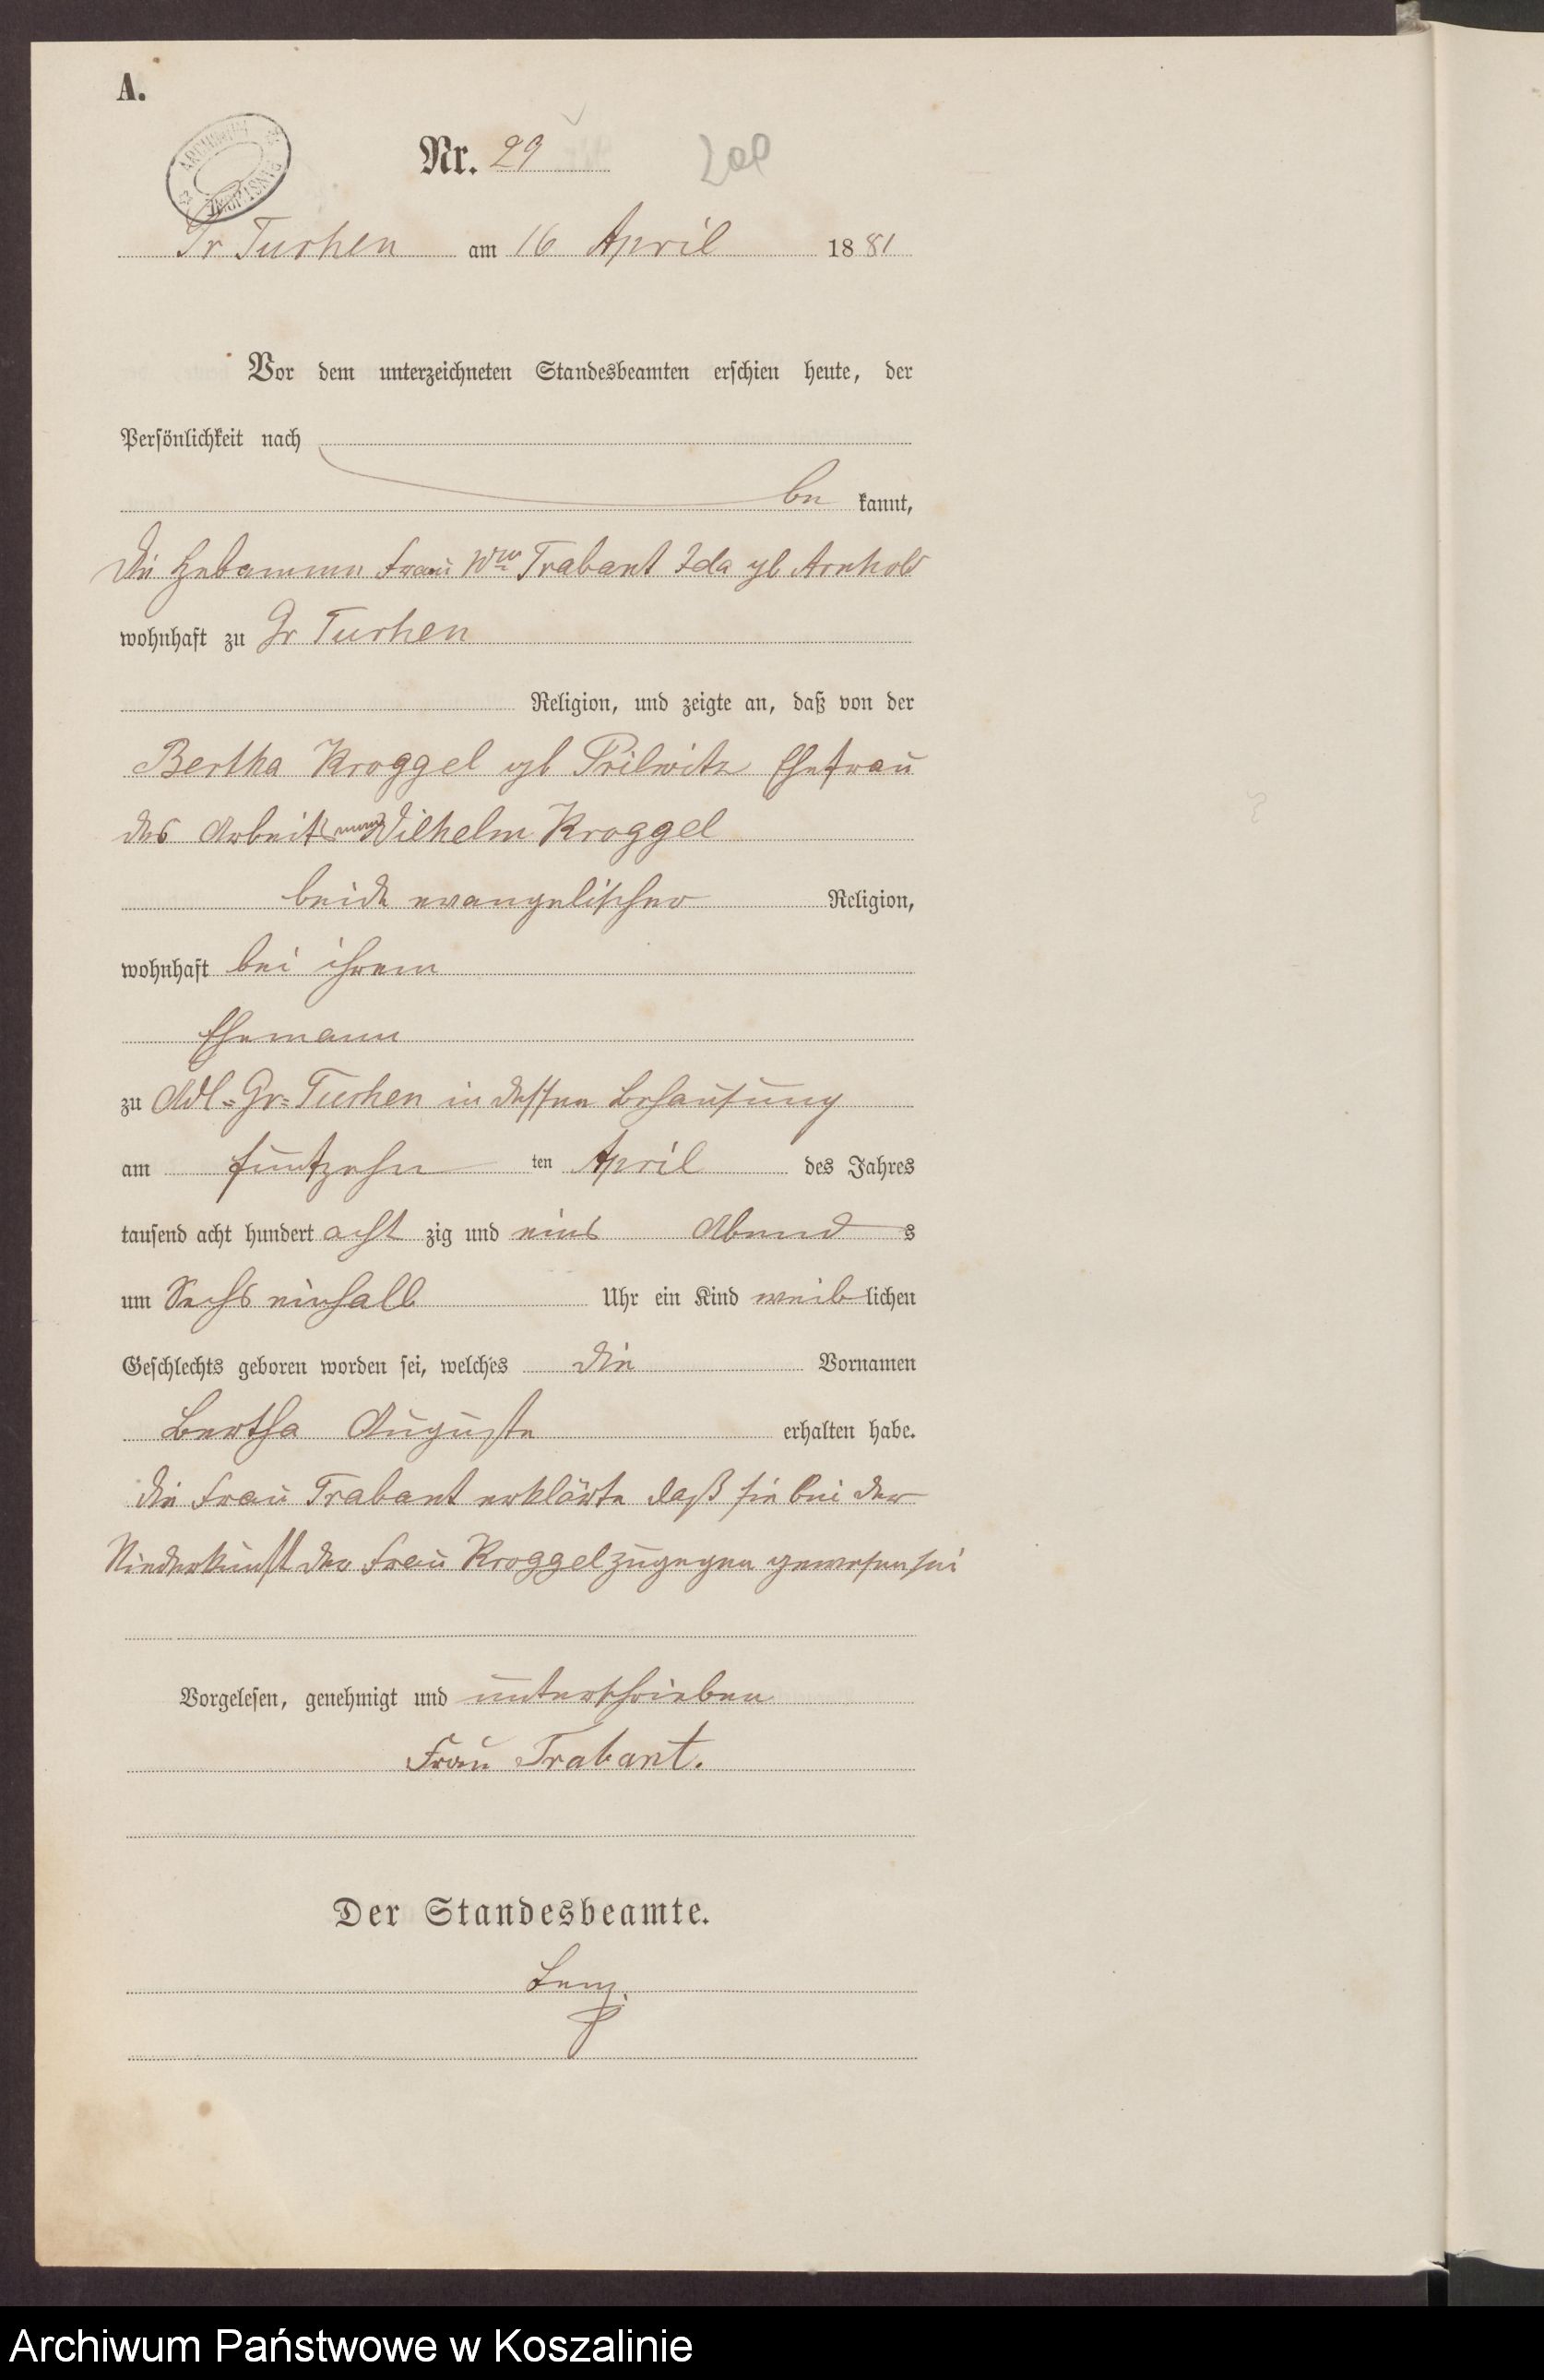 A.
Nr. 29
Gr Tuchen am 16 April 1881
Vor dem unterzeichneten Standesbeamten erschien heute, der
Persönlichkeit nach
be kannt,
die Hebamme Frau Wwe Trabant Ida gb Arnhold
wohnhaft zu Gr Tuchen
Religion, und zeigte an, daß von der
Bertha Kroggel gb Prilwitz Ehefrau
des Arbeitsmann Wilhelm Kroggel
beide evangelischer Religion,
wohnhaft bei ihrem
Ehemann
zu Adl=Gr=Tuchen in dessen Behausung
am fünfzehn ten April des Jahres
tausend acht hundert acht zig und eins Abend s
um Sechs einhalb Uhr ein Kind weib lichen
Geschlechts geboren worden sei, welches die Vornamen
Bertha Auguste erhalten habe.
die Frau Trabant erklärte daß sie bei der
Niederkunft der Frau Kroggel zugegen gewesen sei
Vorgelesen, genehmigt und unterschrieben
Frau Trabant.
Der Standesbeamte.
Lenz.
Archiwum Państwowe w Koszalinie